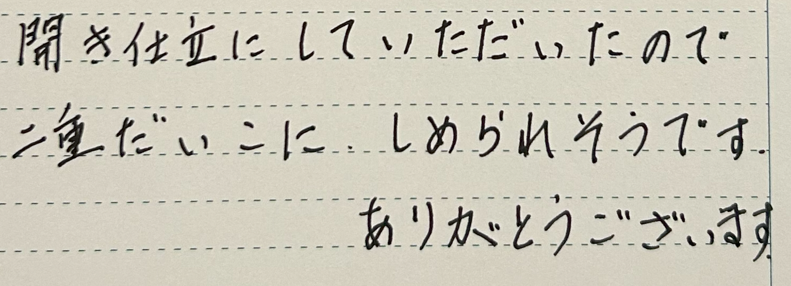 開き仕立にしていただいたので
二重だいこに、しめられそうです。
ありがとうございます